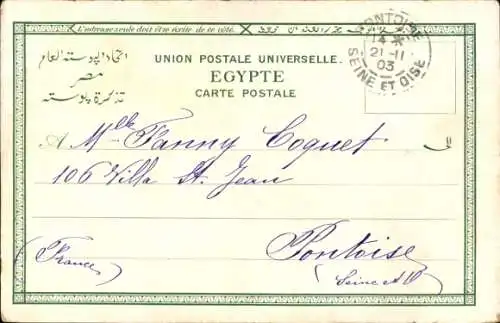 L'adresse seule doit être écrite de ce côté.
UNION POSTALE UNIVERSELLE.
EGYPTE
CARTE POSTALE
اتحاد البوسته العام
مصر
تذكرة بوسته
PONTOISE
14
21 - 11
03
SEINE ET OISE
A Mlle Fanny Coquet
106 Villa St. Jean
Pontoise
(France)
(Seine et O)